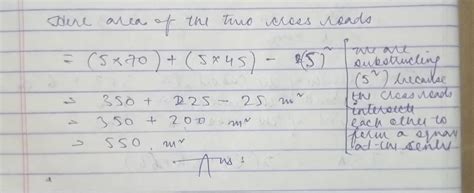 Here area of the two cross roads
= (5×70) + (5×45) - (5)²
= 350 + 225 - 25 m²
= 350 + 200 m²
⇒ 550 m²
Ans
we are
substracting
(5²) because
the crossroads
intersects
each other to
form a square
at the center